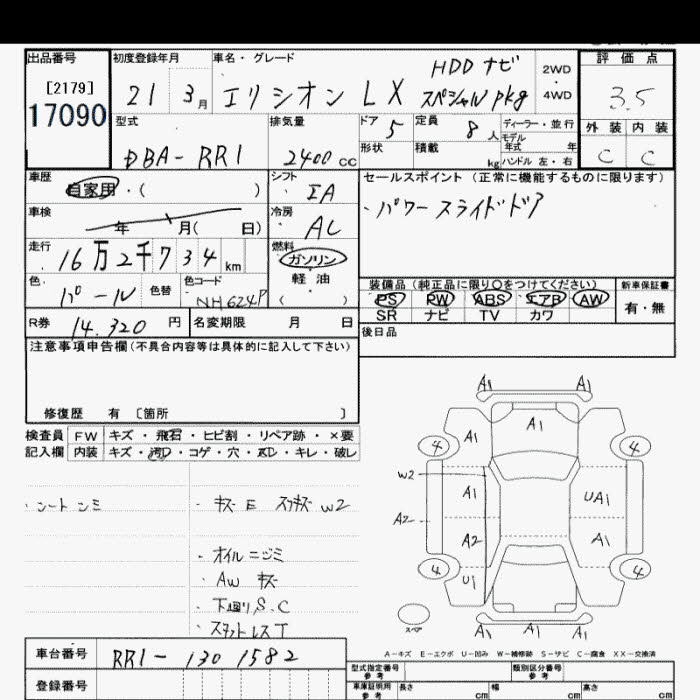 出品番号
[2179]
17090
初度登録年月
21 3月
車名・グレード
エリシオン LX HDD ナビ
スペシャル pkg
2WD
・
4WD
評価点
3.5
外装 内装
C C
型式
DBA-RR1
排気量
2400 cc
ドア 5
定員 8人
形状
積載 kg
ディーラー・並行
モデル
年式 年
ハンドル 左・右
車歴
自家用・( )
シフト
IA
車検
年 月( 日)
冷房
AC
走行
16万2千734 km
燃料
ガソリン
軽油
( )
色
パール
色替
色コード
NH624P
R券
14,320 円
名変期限 月 日
セールスポイント(正常に機能するものに限ります)
・パワースライドドア
装備品(純正品に限り〇をつけてください)
PS PW ABS エアB AW
SR ナビ TV カワ
新車保証書
有・無
後日品
注意事項申告欄(不具合内容等は具体的に記入して下さい)
修復歴 有 〔箇所 〕
検査員
記入欄
FW キズ・飛石・ヒビ割・リペア跡・×要
内装 キズ・汚レ・コゲ・穴・灰レ・キレ・破レ
・シートシミ
・キズ E スリキズ W2
・オイルニジミ
・AW キズ
・下廻り S.C
・スタットレス T
A1 A1
A1 A1
4 4
W2
A1 UA1
A2
A2 A1
4 4
U1
スペア
A1 A1 A1
A-キズ E-エクボ U-凹み W-補修跡 S-サビ C-腐食 XX-交換済
車台番号
RR1-1301582
登録番号
型式指定番号
参考
類別区分番号
参考
車庫証明用
参考
長さ cm
幅 cm
高さ cm